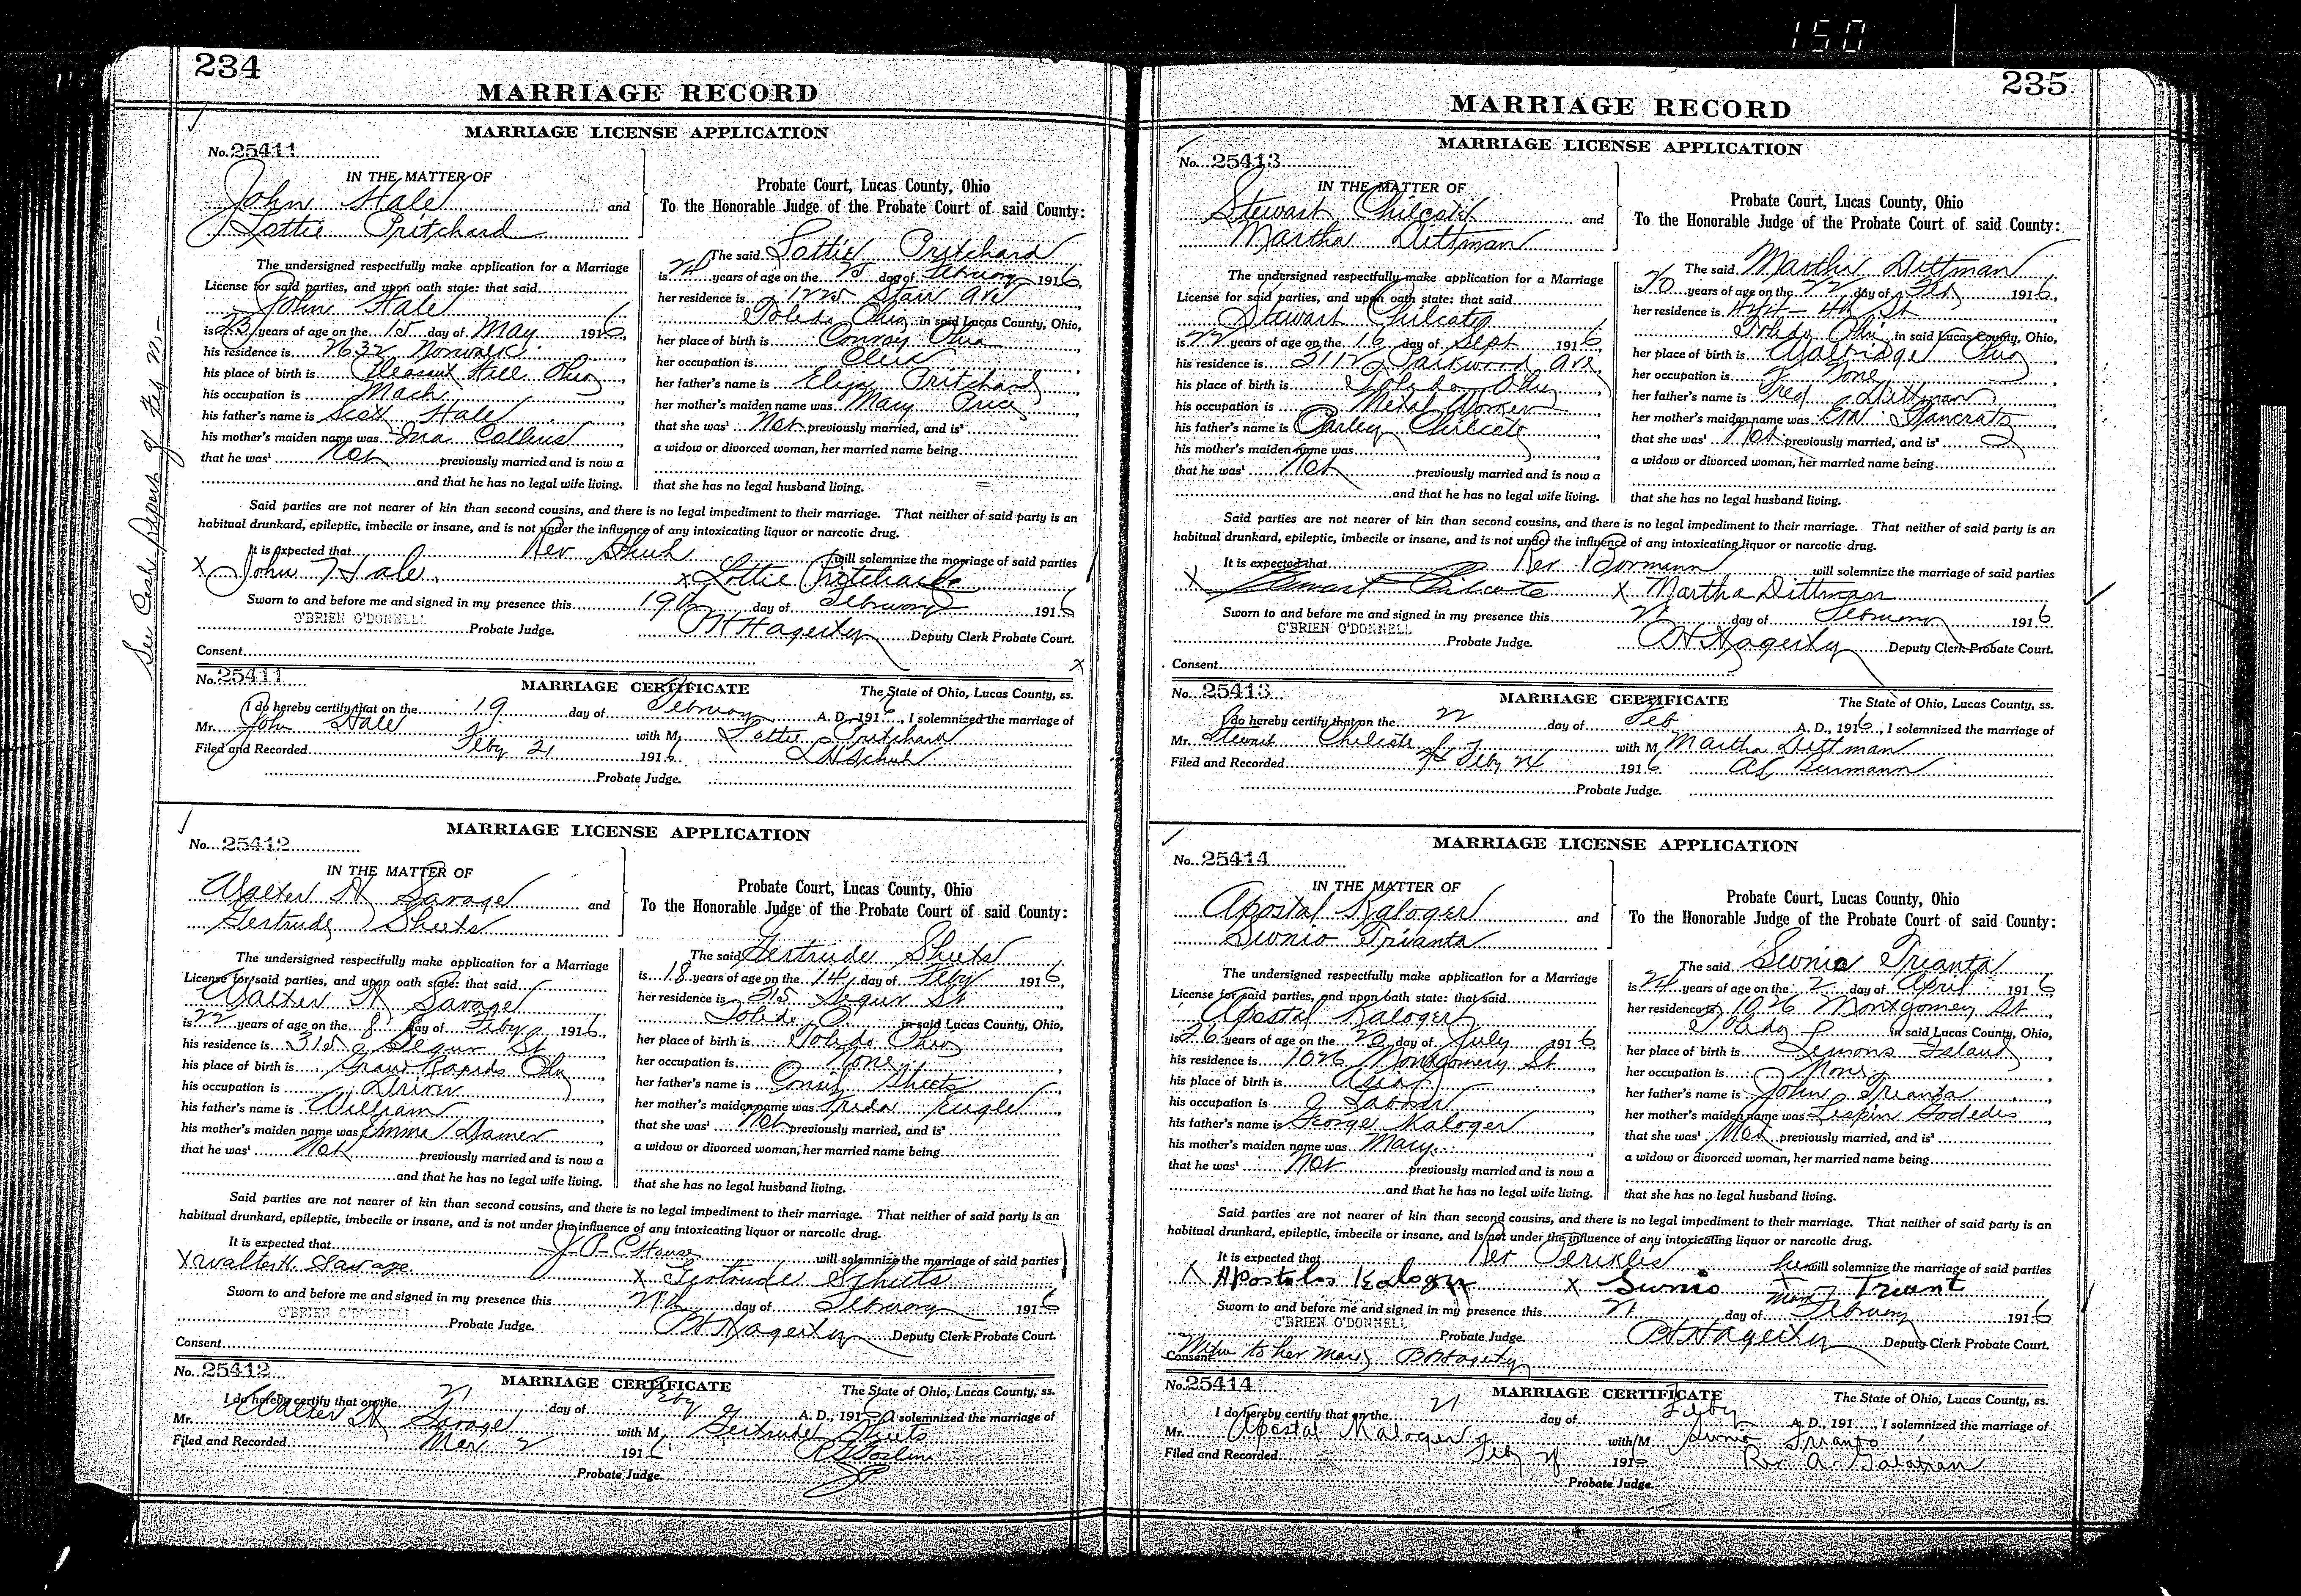 150
234
MARRIAGE RECORD
MARRIAGE LICENSE APPLICATION
No. 25411
IN THE MATTER OF
John Hale and
Lottie Pritchard
Probate Court, Lucas County, Ohio
To the Honorable Judge of the Probate Court of said County:
The undersigned respectfully make application for a Marriage
License for said parties, and upon oath state: that said
John Hale
is 23 years of age on the 15 day of May 1916,
his residence is 2632 Norwalk,
his place of birth is Pleasant Hill Ohio,
his occupation is Mach,
his father's name is Scott Hale,
his mother's maiden name was Ina Collins,
that he was¹ Not previously married and is now a
and that he has no legal wife living.
The said Lottie Pritchard
is 21 years of age on the 25 day of February 1916,
her residence is 1225 Starr Ave
Toledo Ohio in said Lucas County, Ohio,
her place of birth is Conroy Ohio,
her occupation is Cleric,
her father's name is Pritchard,
her mother's maiden name was Mary Price,
that she was¹ Not previously married, and is²
a widow or divorced woman, her married name being
that she has no legal husband living.
Said parties are not nearer of kin than second cousins, and there is no legal impediment to their marriage. That neither of said party is an
habitual drunkard, epileptic, imbecile or insane, and is not under the influence of any intoxicating liquor or narcotic drug.
It is expected that Rev Schuh will solemnize the marriage of said parties
X John Hale. X Lottie Pritchard
Sworn to and before me and signed in my presence this 19th day of February 1916
O'BRIEN O'DONNELL Probate Judge. Hagerty Deputy Clerk Probate Court.
Consent X
See Cash Report of
No. 25411
MARRIAGE CERTIFICATE The State of Ohio, Lucas County, ss.
I do hereby certify that on the 19 day of February A. D., 1916, I solemnized the marriage of
Mr. John Hale with M. Lottie Pritchard
Filed and Recorded Feby 21 1916 Schuh
Probate Judge.
MARRIAGE LICENSE APPLICATION
No. 25412
IN THE MATTER OF
Walter H Savage and
Gertrude Sheets
Probate Court, Lucas County, Ohio
To the Honorable Judge of the Probate Court of said County:
The undersigned respectfully make application for a Marriage
License for said parties, and upon oath state: that said
Walter H Savage
is 22 years of age on the 8 day of Feby 1916,
his residence is 315 Segur St,
his place of birth is Grand Rapids Ohio,
his occupation is Driver,
his father's name is William,
his mother's maiden name was Emma,
that he was¹ Not previously married and is now a
and that he has no legal wife living.
The said Gertrude Sheets
is 18 years of age on the 14 day of Feby 1916,
her residence is 315 Segur St
Toledo O. in said Lucas County, Ohio,
her place of birth is Toledo Ohio,
her occupation is None,
her father's name is Sheets,
her mother's maiden name was Freda Engle,
that she was¹ Not previously married, and is²
a widow or divorced woman, her married name being
that she has no legal husband living.
Said parties are not nearer of kin than second cousins, and there is no legal impediment to their marriage. That neither of said party is an
habitual drunkard, epileptic, imbecile or insane, and is not under the influence of any intoxicating liquor or narcotic drug.
It is expected that J.P. will solemnize the marriage of said parties
X Walter H. Savage. X Gertrude Scheets
Sworn to and before me and signed in my presence this 21st day of February 1916
O'BRIEN O'DONNELL Probate Judge. Hagerty Deputy Clerk Probate Court.
Consent
No. 25412
MARRIAGE CERTIFICATE The State of Ohio, Lucas County, ss.
I do hereby certify that on the 21 day of Feby A. D., 1916, I solemnized the marriage of
Mr. Walter H Savage with M. Gertrude Sheets
Filed and Recorded Mar 2 1916
Probate Judge.
235
MARRIAGE RECORD
MARRIAGE LICENSE APPLICATION
No. 25413
IN THE MATTER OF
Stewart Chilcote and
Martha Dittman
Probate Court, Lucas County, Ohio
To the Honorable Judge of the Probate Court of said County:
The undersigned respectfully make application for a Marriage
License for said parties, and upon oath state: that said
Stewart Chilcote
is 22 years of age on the 16 day of Sept 1916
his residence is 2112 Parkwood Ave,
his place of birth is Toledo Ohio,
his occupation is Metal Worker,
his father's name is Chilcote,
his mother's maiden name was
that he was¹ Not previously married and is now a
and that he has no legal wife living.
The said Martha Dittman
is 20 years of age on the 22 day of Feb 1916,
her residence is 424 - 4th St
Toledo Ohio in said Lucas County, Ohio,
her place of birth is Walbridge Ohio,
her occupation is None,
her father's name is Fred Dittman,
her mother's maiden name was Pancratz,
that she was¹ Not previously married, and is²
a widow or divorced woman, her married name being
that she has no legal husband living.
Said parties are not nearer of kin than second cousins, and there is no legal impediment to their marriage. That neither of said party is an
habitual drunkard, epileptic, imbecile or insane, and is not under the influence of any intoxicating liquor or narcotic drug.
It is expected that Rev Bormann will solemnize the marriage of said parties
X Stewart Chilcote X Martha Dittman
Sworn to and before me and signed in my presence this 21 day of February 1916
O'BRIEN O'DONNELL Probate Judge. Hagerty Deputy Clerk Probate Court.
Consent
No. 25413
MARRIAGE CERTIFICATE The State of Ohio, Lucas County, ss.
I do hereby certify that on the 22 day of Feb A. D., 1916, I solemnized the marriage of
Mr. Stewart Chilcote with M Martha Dittman
Filed and Recorded Feby 24 1916
Probate Judge.
MARRIAGE LICENSE APPLICATION
No. 25414
IN THE MATTER OF
Apostal Kaloger and
Sionio Trianta
Probate Court, Lucas County, Ohio
To the Honorable Judge of the Probate Court of said County:
The undersigned respectfully make application for a Marriage
License for said parties, and upon oath state: that said
Apostal Kaloger
is 26 years of age on the 20 day of July 1916,
his residence is 1026 Montgomery St
his place of birth is Asia,
his occupation is Laborer,
his father's name is George Kaloger,
his mother's maiden name was Mary,
that he was¹ Not previously married and is now a
and that he has no legal wife living.
The said Sionio Trianta
is 24 years of age on the 2 day of April 1916,
her residence is 1026 Montgomery St
Toledo O in said Lucas County, Ohio,
her place of birth is Island,
her occupation is None,
her father's name is John Trianta,
her mother's maiden name was
that she was¹ Not previously married, and is²
a widow or divorced woman, her married name being
that she has no legal husband living.
Said parties are not nearer of kin than second cousins, and there is no legal impediment to their marriage. That neither of said party is an
habitual drunkard, epileptic, imbecile or insane, and is not under the influence of any intoxicating liquor or narcotic drug.
It is expected that Rev Perikles will solemnize the marriage of said parties
X Apostolos Kaloger X Sionio her X mark Triant
Sworn to and before me and signed in my presence this 21 day of February 1916
O'BRIEN O'DONNELL Probate Judge. Hagerty Deputy Clerk Probate Court.
Consent to her mark Hagerty
No. 25414
MARRIAGE CERTIFICATE The State of Ohio, Lucas County, ss.
I do hereby certify that on the 21 day of Feby A. D., 191, I solemnized the marriage of
Mr. Apostal Kaloger with M Sionio Trianta
Filed and Recorded Feby 1916 Rev A.
Probate Judge.